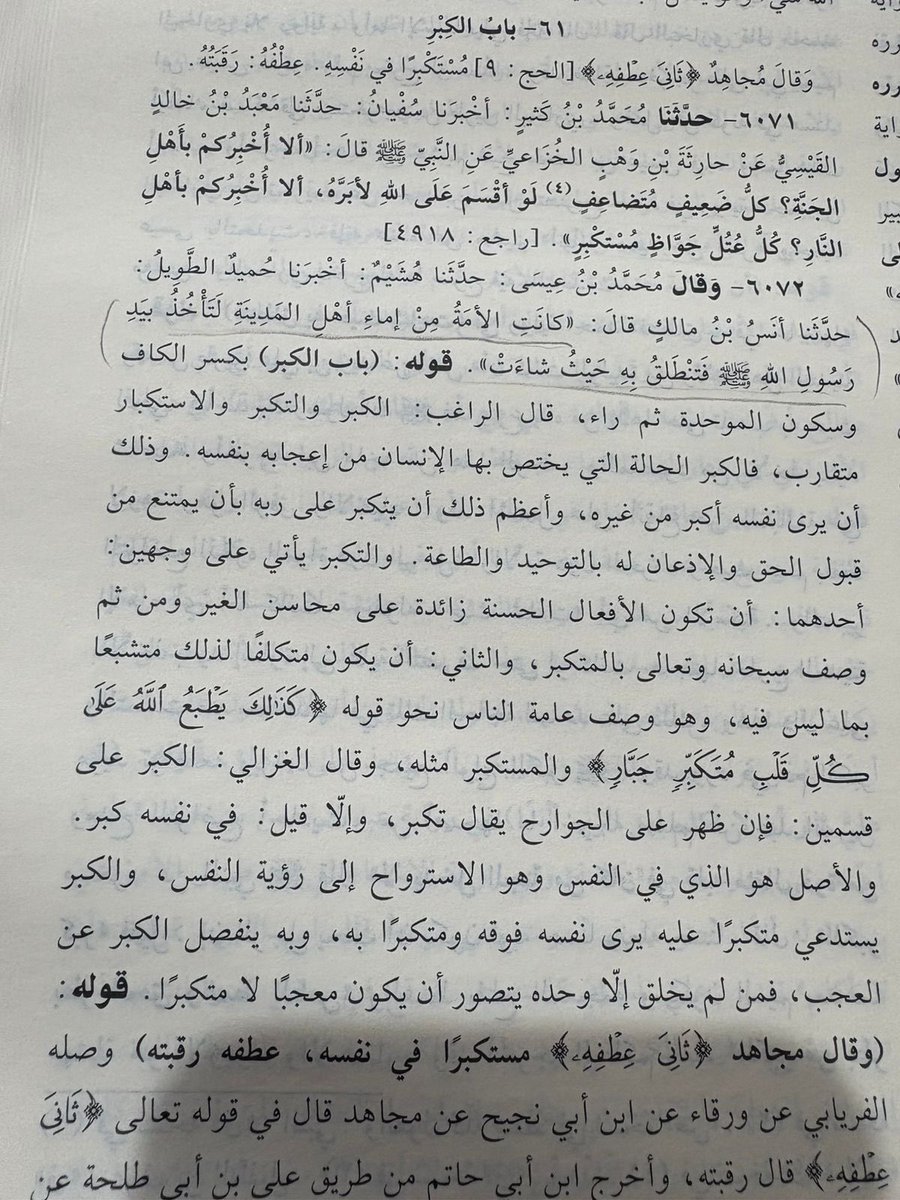 ٦١- بابُ الكِبْرِ
وَقالَ مُجاهِدٌ ﴿ثَانِىَ عِطْفِهِۦ﴾ [الحج: ٩] مُسْتَكْبِرًا في نَفْسِهِ. عِطْفُهُ: رَقَبَتُهُ.
٦٠٧١- حدَّثَنَا مُحَمَّدُ بْنُ كَثيرٍ: أخْبَرَنا سُفْيانُ: حدَّثَنا مَعْبَدُ بْنُ خالدٍ
القَيْسِيُّ عَنْ حارِثَةَ بْنِ وَهْبٍ الخُزَاعيِّ عَنِ النَّبيِّ ﷺ قالَ: «ألا أُخْبِرُكمْ بِأَهْلِ
الجَنَّةِ؟ كلُّ ضَعِيفٍ مُتَضاعِفٍ(٤) لَوْ أقْسَمَ عَلَى اللهِ لأبَرَّهُ، ألا أُخْبِرُكمْ بأهْلِ
النَّارِ؟ كُلُّ عُتُلٍّ جَوَّاظٍ مُسْتَكْبِرٍ». [راجع: ٤٩١٨]
٦٠٧٢- وَقالَ مُحَمَّدُ بْنُ عِيسَى: حدَّثَنا هُشَيْمٌ: أخْبرَنا حُميدٌ الطَّوِيلُ:
حدَّثَنا أنَسُ بْنُ مالكٍ قالَ: «كانَتِ الأمَةُ مِنْ إماءِ أهْلِ المَدِينَةِ لَتَأْخُذُ بيَدِ
رَسُولِ اللهِ ﷺ فَتَنْطَلقُ بِهِ حَيْثُ شاءَتْ». قوله: (باب الكبر) بكسر الكاف
وسكون الموحدة ثم راء، قال الراغب: الكبر والتكبر والاستكبار
متقارب، فالكبر الحالة التي يختص بها الإنسان من إعجابه بنفسه. وذلك
أن يرى نفسه أكبر من غيره، وأعظم ذلك أن يتكبر على ربه بأن يمتنع من
قبول الحق والإذعان له بالتوحيد والطاعة. والتكبر يأتي على وجهين:
أحدهما: أن تكون الأفعال الحسنة زائدة على محاسن الغير ومن ثم
وصف سبحانه وتعالى بالمتكبر، والثاني: أن يكون متكلفًا لذلك متشبعًا
بما ليس فيه، وهو وصف عامة الناس نحو قوله ﴿كَذَٰلِكَ يَطْبَعُ ٱللَّهُ عَلَىٰ
كُلِّ قَلْبِ مُتَكَبِّرٍ جَبَّارٍ﴾ والمستكبر مثله، وقال الغزالي: الكبر على
قسمين: فإن ظهر على الجوارح يقال تكبر، وإلّا قيل: في نفسه كبر.
والأصل هو الذي في النفس وهو الاسترواح إلى رؤية النفس، والكبر
يستدعي متكبرًا عليه يرى نفسه فوقه ومتكبرًا به، وبه ينفصل الكبر عن
العجب، فمن لم يخلق إلّا وحده يتصور أن يكون معجبًا لا متكبرًا. قوله:
(وقال مجاهد ﴿ثَانِىَ عِطْفِهِۦ﴾ مستكبرًا في نفسه، عطفه رقبته) وصله
الفريابي عن ورقاء عن ابن أبي نجيح عن مجاهد قال في قوله تعالى ﴿ثَانِىَ
عِطْفِهِۦ﴾ قال رقبته، وأخرج ابن أبي حاتم من طريق علي بن أبي طلحة عن